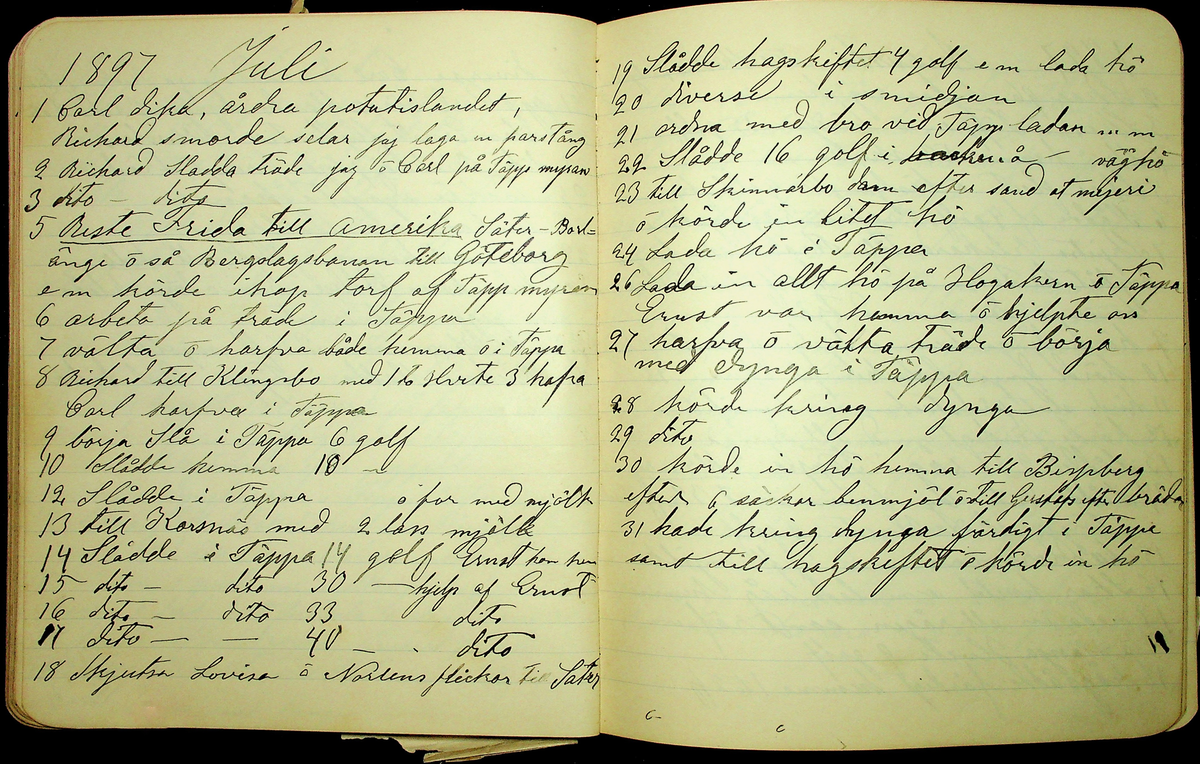 1897 Juli
1 Carl dika, årdra potatislandet,
Richard smorde selar jag laga en parstång
2 Richard Sladda träde jag o Carl på Täpp myran
3 dito — dito
5 Reste Frida till Amerika Säter - Borl=
änge o så Bergslagsbanan till Göteborg
e m körde ihop torf af Täpp myren
6 arbeta på träde i Täppa
7 välta o harfva både hemma o i Täppa
8 Richard till Klingsbo med 16 Hvete 3 hafra
Carl harfva i Täppa
9 börja Slå i Täppa 6 golf
10 Slådde hemma 10 —
12 Slådde i Täppa o for med mjölk
13 till Korsnäs med 2 lass mjölk
14 Slådde i Täppa 14 golf Ernst kom hem
15 dito — dito 30 — hjelp af Ernst
16 dito — dito 33 dito
17 dito — — 40 dito
18 Skjutsa Lovisa o Norlins flickor till Säter
19 Slådde hagskiftet 4 golf e m lada hö
20 diverse i smidjan
21 ordna med bro vid Täpp ladan m m
22 Slådde 16 golf i å — väghö
23 till Skinnarbo dam efter sand at mejeri
o körde in litet hö
24 Lada hö i Täppa
26 Lada in allt hö på Hogakern o Täppa
Ernst var hemma o hjelpte oss
27 harfva o välta träde o börja
med Dynga i Täppa
28 körde kring dynga
29 dito
30 körde in hö hemma till Bispberg
efter 6 säckar benmjöl o till Gustafs efter bräder
31 hade kring dynga färdigt i Täppa
samt till hagskiftet o körde in hö
19